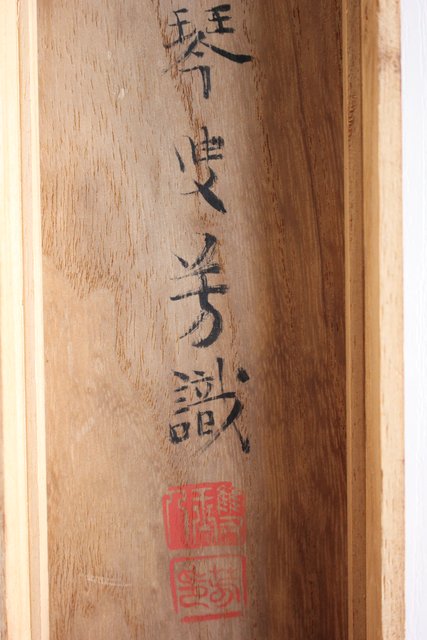 琴叟芳識